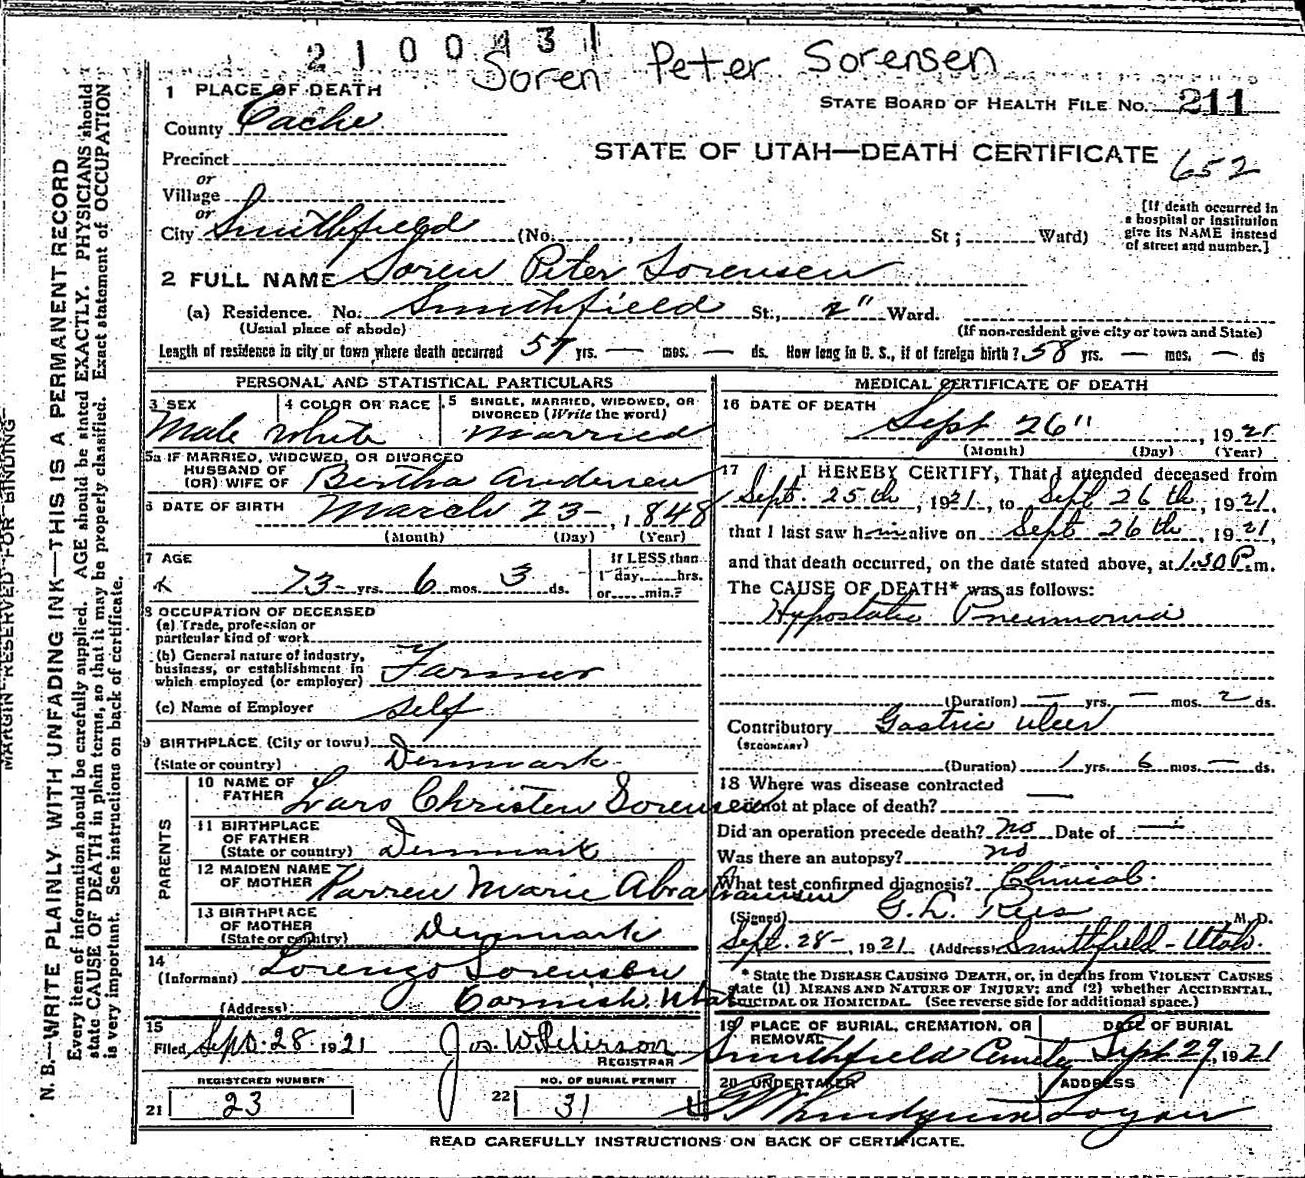 2100431
Soren Peter Sorensen
1 PLACE OF DEATH
County Cache
STATE BOARD OF HEALTH FILE No. 211
Precinct
STATE OF UTAH—DEATH CERTIFICATE 652
or
Village
or
City Smithfield (No. , St ; Ward)
[If death occurred in
a hospital or institution
give its NAME instead
of street and number.]
2 FULL NAME Soren Peter Sorensen
(a) Residence. No. Smithfield St., 2" Ward.
(Usual place of abode) (If non-resident give city or town and State)
Length of residence in city or town where death occurred 57 yrs. — mos. — ds. How long in U. S., if of foreign birth? 58 yrs. — mos. — ds
PERSONAL AND STATISTICAL PARTICULARS
3 SEX
Male
4 COLOR OR RACE
White
5 SINGLE, MARRIED, WIDOWED, OR
DIVORCED (Write the word)
Married
5a IF MARRIED, WIDOWED, OR DIVORCED
HUSBAND OF
(OR) WIFE OF Bertha Andersen
6 DATE OF BIRTH March 23-, 1848
(Month) (Day) (Year)
7 AGE
73- yrs. 6 mos. 3 ds.
If LESS than
1 day, hrs.
or min.?
8 OCCUPATION OF DECEASED
(a) Trade, profession or
particular kind of work
(b) General nature of industry,
business, or establishment in
which employed (or employer) Farmer
(c) Name of Employer Self
9 BIRTHPLACE (City or town)
(State or country) Denmark
PARENTS
10 NAME OF
FATHER Lars Christen Sorensen
11 BIRTHPLACE
OF FATHER
(State or country) Denmark
12 MAIDEN NAME
OF MOTHER Karren Marie Abrahamsen
13 BIRTHPLACE
OF MOTHER
(State or country) Denmark
14
(Informant) Lorenzo Sorensen
(Address) Cornish Utah
15
Filed Sept. 28. 1921 Jos. W. Peterson
REGISTRAR
REGISTERED NUMBER
21 23
NO. OF BURIAL PERMIT
22 31
MEDICAL CERTIFICATE OF DEATH
16 DATE OF DEATH
Sept 26", 1921
(Month) (Day) (Year)
17 I HEREBY CERTIFY, That I attended deceased from
Sept. 25th, 1921, to Sept 26th, 1921,
that I last saw him alive on Sept 26th, 1921,
and that death occurred, on the date stated above, at 1.30 P.m.
The CAUSE OF DEATH* was as follows:
Hypostatic Pneumonia
(Duration) — yrs. — mos. 2 ds.
Contributory Gastric ulcer
(SECONDARY)
(Duration) 1 yrs. 6 mos. — ds.
18 Where was disease contracted
if not at place of death? —
Did an operation precede death? no Date of —
Was there an autopsy? no
What test confirmed diagnosis? Clinical.
(Signed) G. L. Rees M. D.
Sept. 28-, 1921 (Address) Smithfield-Utah.
* State the DISEASE CAUSING DEATH, or, in deaths from VIOLENT CAUSES
state (1) MEANS AND NATURE OF INJURY; and (2) whether ACCIDENTAL,
SUICIDAL OR HOMICIDAL. (See reverse side for additional space.)
19 PLACE OF BURIAL, CREMATION, OR
REMOVAL
Smithfield Cemetery
DATE OF BURIAL
Sept 29, 1921
20 UNDERTAKER
ADDRESS
Logan
READ CAREFULLY INSTRUCTIONS ON BACK OF CERTIFICATE.
MARGIN RESERVED FOR BINDING
N. B.—WRITE PLAINLY WITH UNFADING INK—THIS IS A PERMANENT RECORD
Every item of information should be carefully supplied. AGE should be stated EXACTLY. PHYSICIANS should
state CAUSE OF DEATH in plain terms, so that it may be properly classified. Exact statement of OCCUPATION
is very important. See instructions on back of certificate.